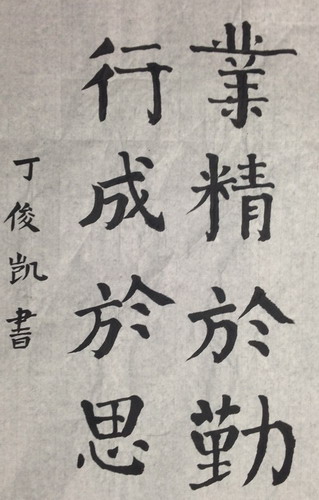 業精於勤
行成於思
丁俊凱書